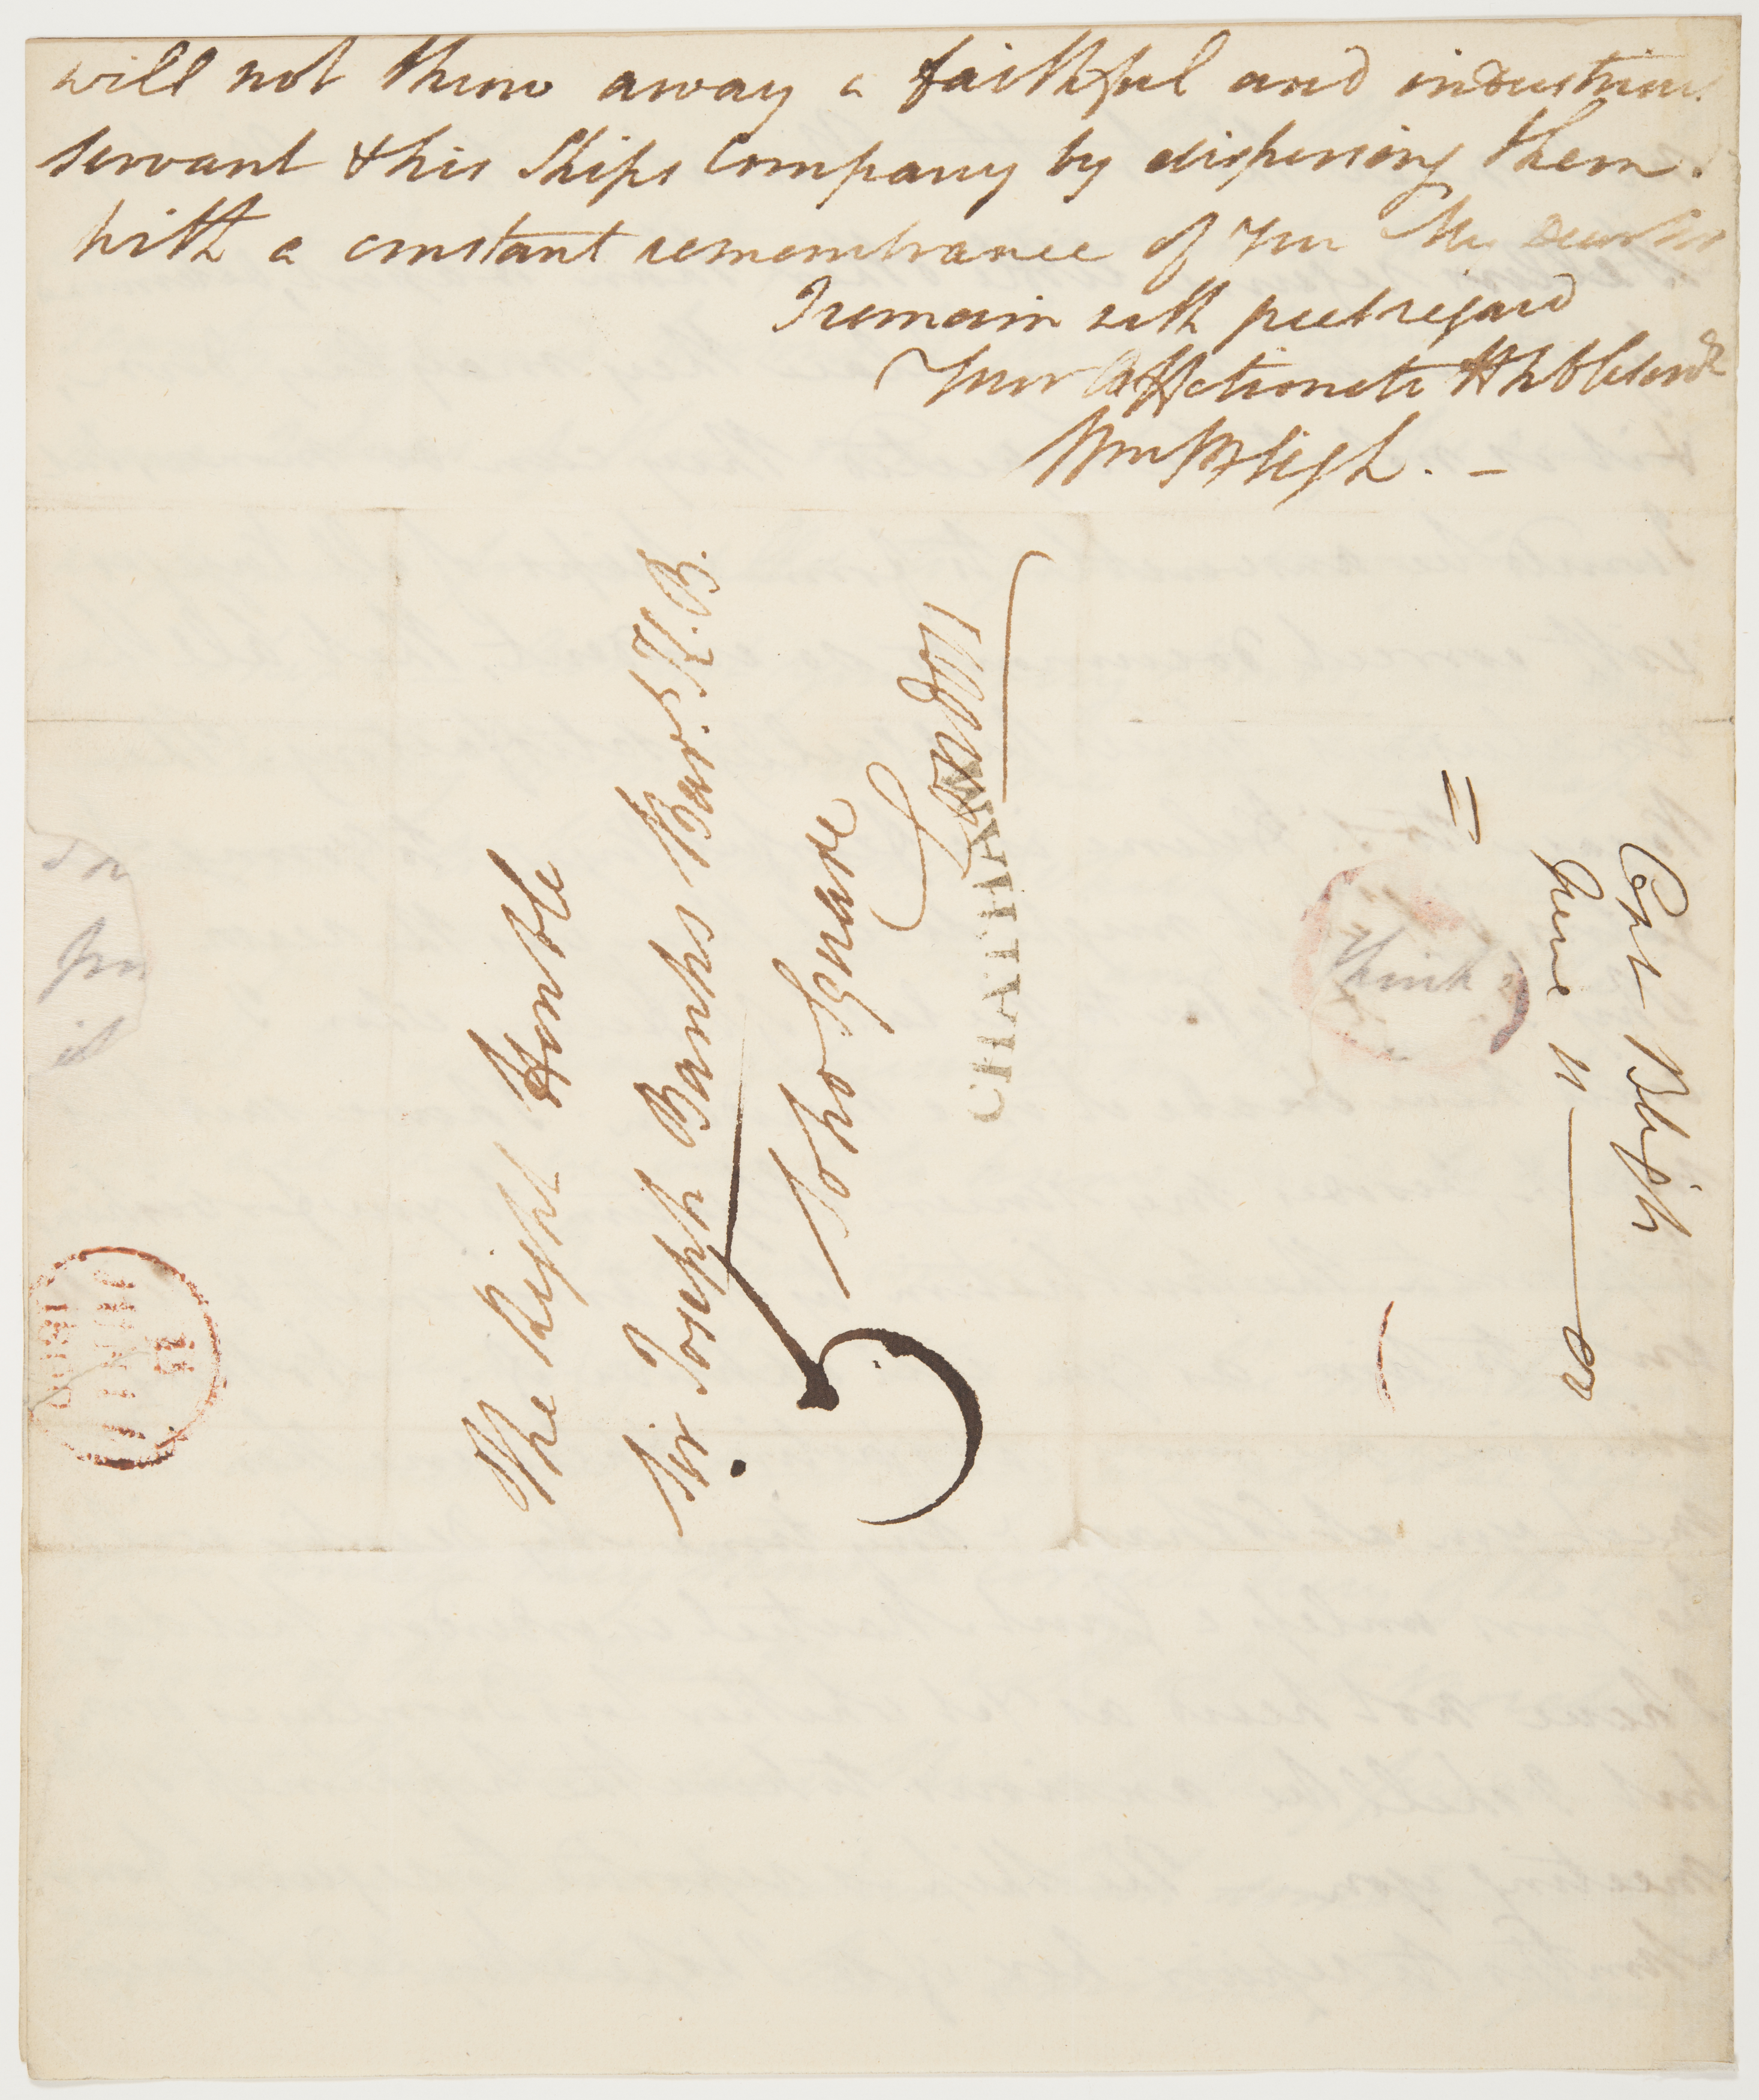 will not throw away a faithful and industrious
servant & his Ships Company by dispersing them.
With a constant remembrance of you My Dear Sir
I remain with great regard
Your Affectionate & hble
Wm Bligh. —
The Right Honble
Sir Joseph Banks Bart. K.B.
Soho Square
London
CHATHAM
5
Capt Bligh
June 11 —— 02
think
it
JUN 12
1802